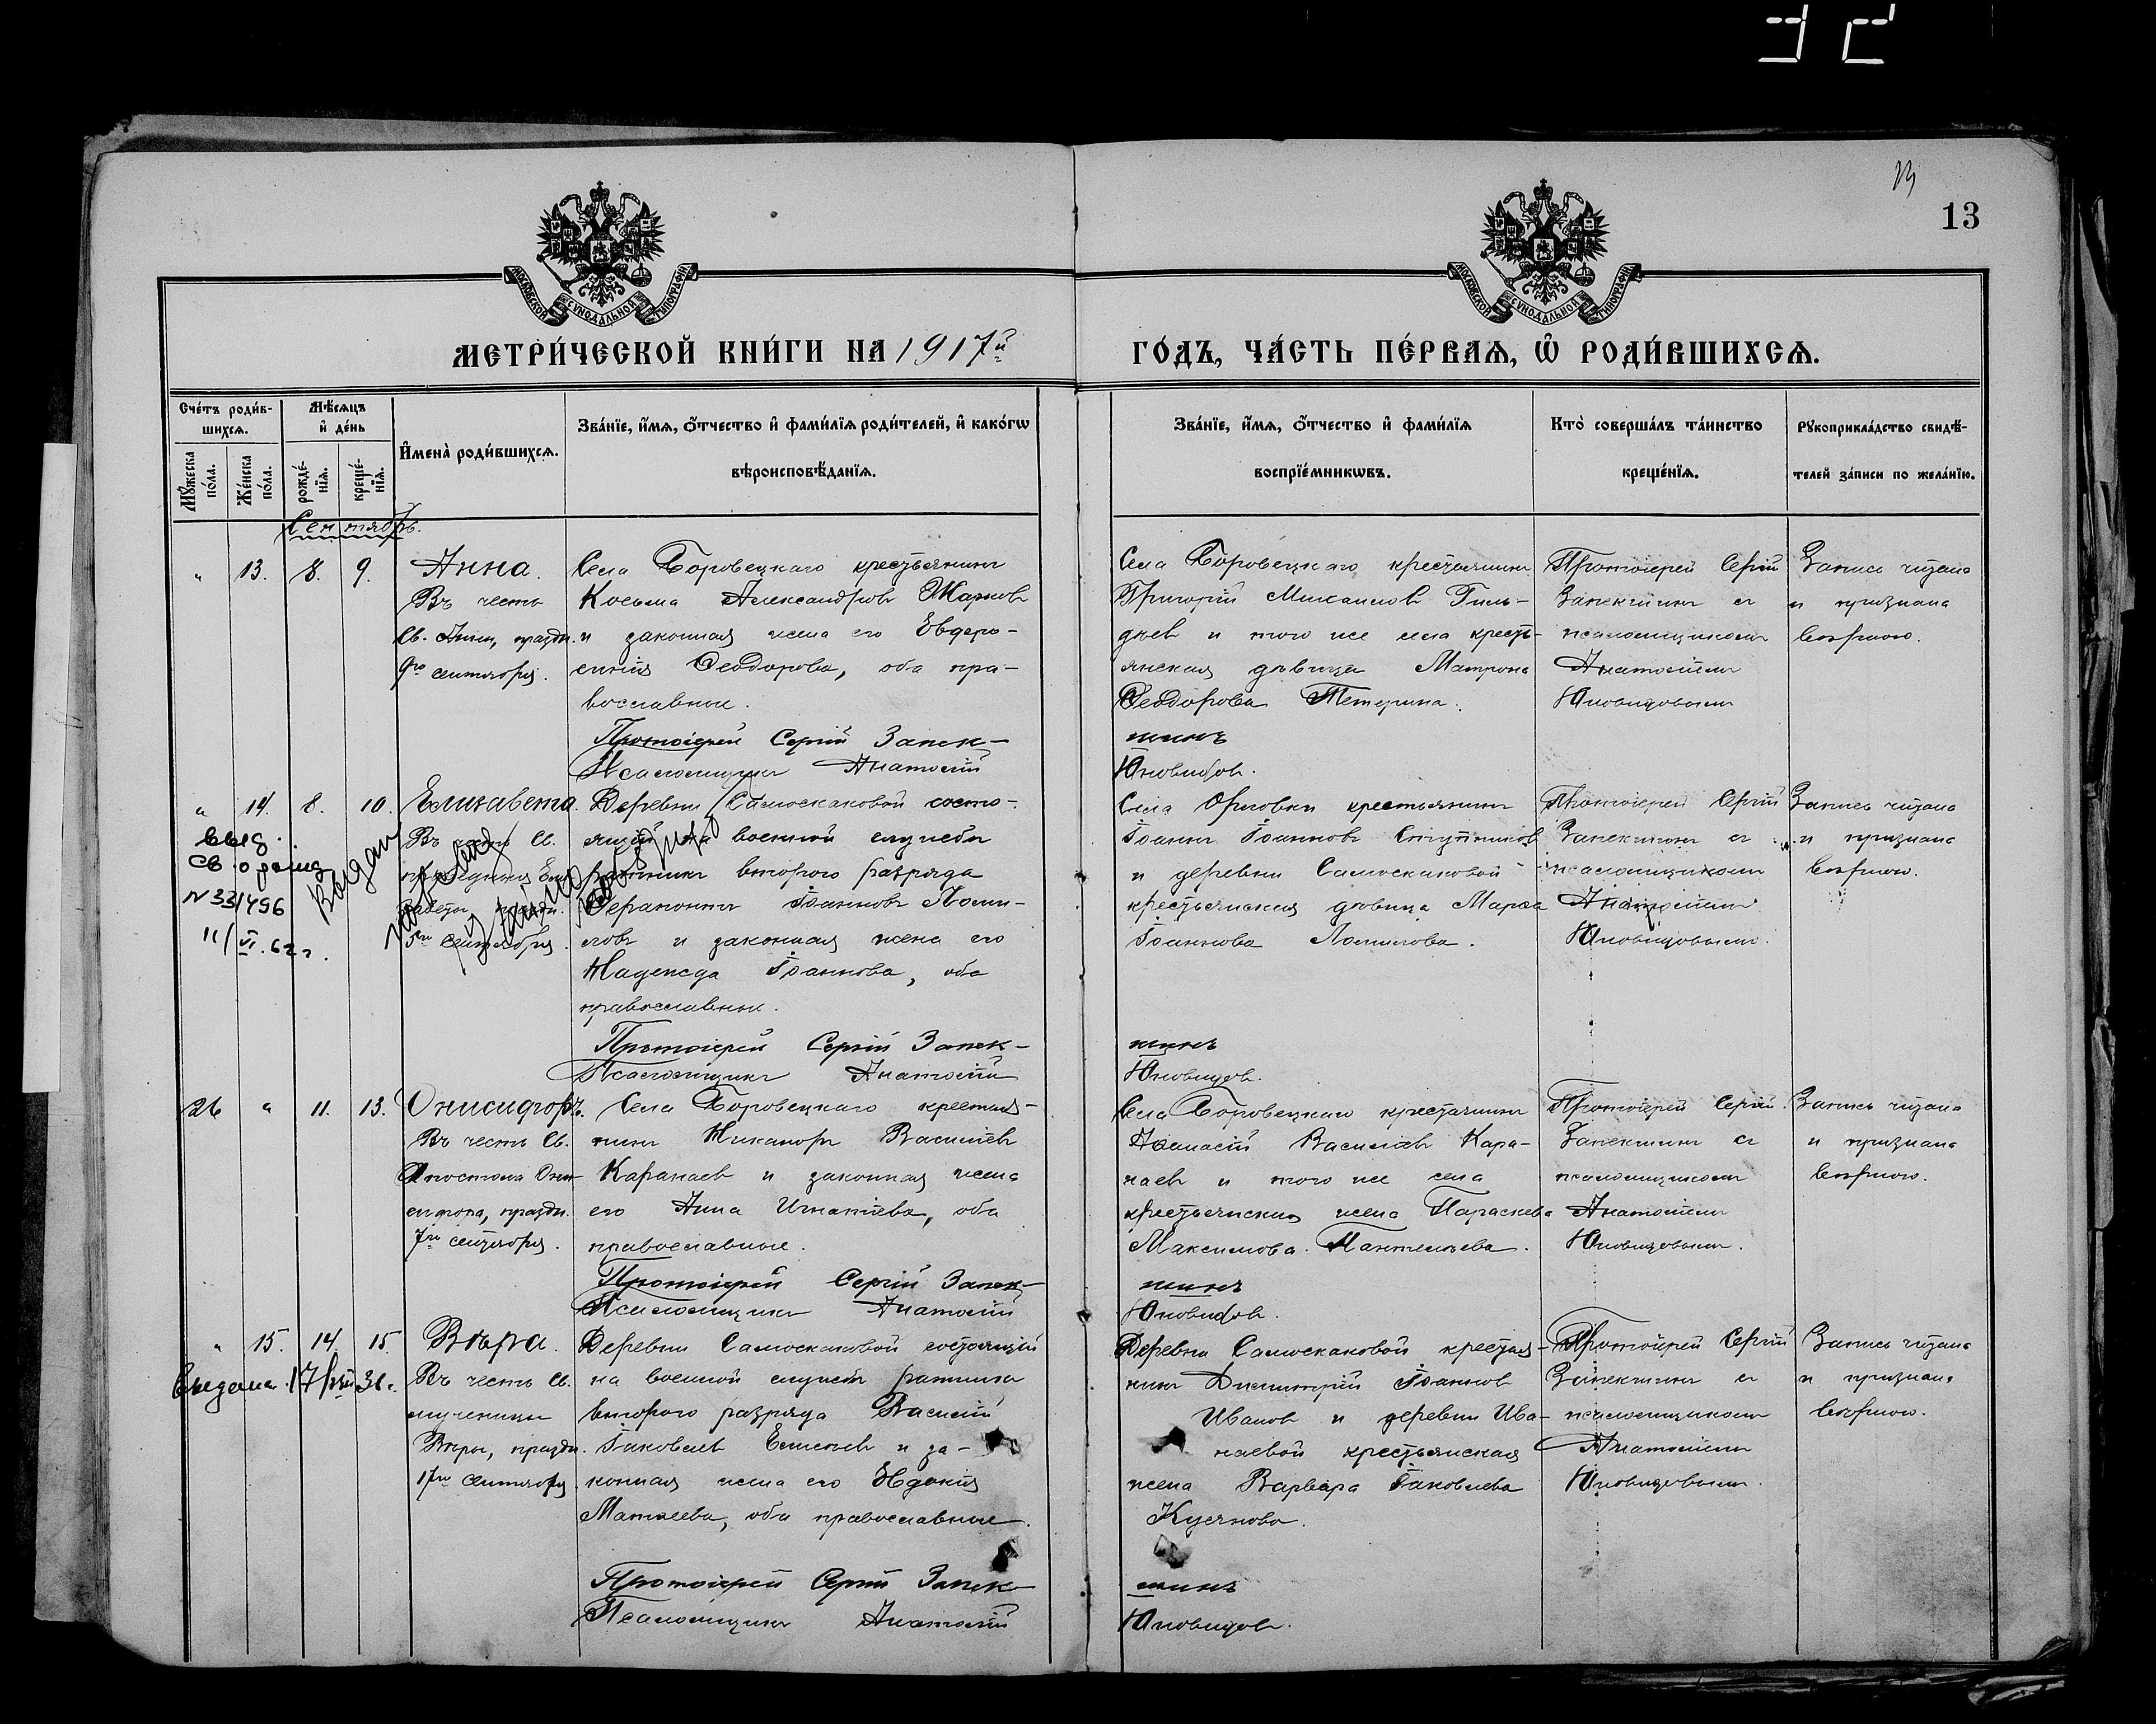 13
13
МОСКОВСКОЙ СѴНОДАЛЬНОЙ ТИПОГРАФІИ
МОСКОВСКОЙ СѴНОДАЛЬНОЙ ТИПОГРАФІИ
МЕТРИ́ЧЕСКОЙ КНИ́ГИ НА 1917й
ГО́ДЪ, ЧА́СТЬ ПЕ́РВАѦ, Ѽ РОДИ́ВШИХСѦ.
Сче́тъ роди́в-
шихсѧ.
Мѣ́сѧцъ
и҆ де́нь
Мꙋ́жеска по́ла.
Же́нска по́ла.
рожде́-нїѧ.
креще́-нїѧ.
И҆мена̀ роди́вшихсѧ.
Зва́нїе, и҆́мѧ, ѻ҆́тчество и҆ фами́лїѧ роди́телей, и҆ како́гѡ
вѣроисповѣ́данїѧ.
Зва́нїе, и҆́мѧ, ѻ҆́тчество и҆ фами́лїѧ
воспрїе́мникѡвъ.
Кто̀ соверша́лъ та́инство
креще́нїѧ.
Рꙋкоприкла́дство свидѣ́-
телей за́писи по жела́нїю.
Сентябрь.
" 13. 8. 9.
Анна.
Въ честь
Св. Анны, праздн.
9го сентября.
Села Боровецкаго крестьянинъ
Косьма Александровъ Жарковъ
и законная жена его Евфро-
синія Ѳеодорова, оба пра-
вославные.
Протоіерей Сергій Запек-
Псаломщикъ Анатолій
Села Боровецкаго крестьянинъ
Григорій Михаиловъ
и того же села кресть-
янская дѣвица Матрона
Ѳеодорова Тетерина.
шинъ
Юновидовъ.
Протоіерей Сергій
Запекшинъ съ
псаломщикомъ
Анатоліемъ
Юновидовымъ
Запись читана
и признана
вѣрною.
" 14. 8. 10.
выд.
Св. о рожд
N 331496
11/VI.62г.
Выдан
Елизавета.
Въ честь Св.
праведныя Ели-
заветы, праздн.
5го сентября.
Деревни Самоскаковой состо-
ящій на военной службѣ
ратникъ второго разряда
Ферапонтъ Іоанновъ Ломи-
ловъ и законная жена его
Надежда Іоаннова, оба
православные.
Протоіерей Сергій Запек-
Псаломщикъ Анатолій
Села Орловки крестьянинъ
Іоаннъ Іоанновъ Ступниковъ
и деревни Самоскаковой
крестьянская дѣвица Марѳа
Іоаннова Ломилова.
шинъ
Юновидовъ.
Протоіерей Сергій
Запекшинъ съ
псаломщикомъ
Анатоліемъ
Юновидовымъ.
Запись читана
и признана
вѣрною.
26 " 11. 13.
Онисифоръ.
Въ честь Св.
Апостола Они-
сифора, праздн.
7го сентября.
Села Боровецкаго крестья-
нинъ Никаноръ Васильевъ
Каранаевъ и законная жена
его Анна Игнатіева, оба
православные.
Протоіерей Сергій Запек-
Псаломщикъ Анатолій
Села Боровецкаго крестьянинъ
Аѳанасій Васильевъ Кара-
наевъ и того же села
крестьянская жена Параскева
Максимова Пантелеева.
шинъ
Юновидовъ.
Протоіерей Сергій
Запекшинъ съ
псаломщикомъ
Анатоліемъ
Юновидовымъ.
Запись читана
и признана
вѣрною.
" 15. 14. 15.
Выдана 17
Вѣра.
Въ честь Св.
мученицы
Вѣры, праздн.
17го сентября
Деревни Самоскаковой состоящій
на военной службѣ ратникъ
второго разряда Василій
Іаковлевъ Емелевъ и за-
конная жена его Евдокія
Матѳеева, оба православные.
Протоіерей Сергій Запек-
Псаломщикъ Анатолій
Деревни Самоскаковой крестья-
нинъ Димитрій Іоанновъ
Ивановъ и деревни Ива-
наевой крестьянская
жена Варвара Іаковлева
шинъ
Юновидовъ.
Протоіерей Сергій
Запекшинъ съ
псаломщикомъ
Анатоліемъ
Юновидовымъ.
Запись читана
и признана
вѣрною.